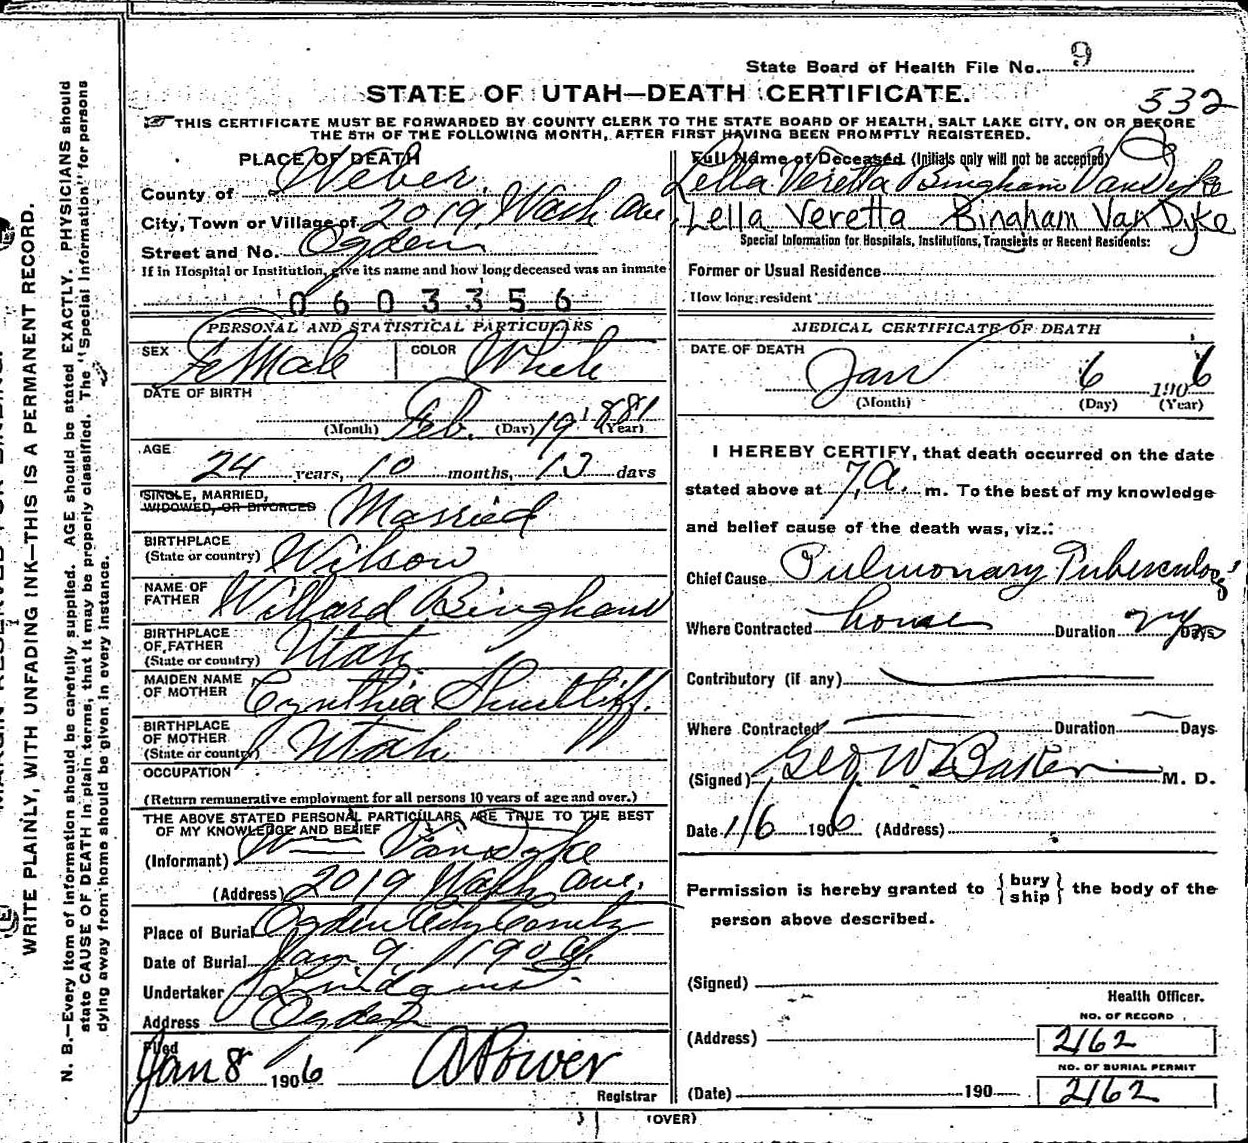 State Board of Health File No. 9
STATE OF UTAH—DEATH CERTIFICATE.
332
THIS CERTIFICATE MUST BE FORWARDED BY COUNTY CLERK TO THE STATE BOARD OF HEALTH, SALT LAKE CITY, ON OR BEFORE
THE 5TH OF THE FOLLOWING MONTH, AFTER FIRST HAVING BEEN PROMPTLY REGISTERED.
PLACE OF DEATH
County of Weber,
City, Town or Village of 2019, Wash Ave,
Street and No. Ogden
If in Hospital or Institution, give its name and how long deceased was an inmate
0603356
PERSONAL AND STATISTICAL PARTICULARS
SEX FeMale COLOR White
DATE OF BIRTH
Feb. 19 1881
(Month) (Day) (Year)
AGE
24 years, 10 months, 13 days
SINGLE, MARRIED,
WIDOWED, OR DIVORCED Married
BIRTHPLACE
(State or country) Wilson
NAME OF
FATHER Willard Bingham
BIRTHPLACE
OF FATHER
(State or country) Utah
MAIDEN NAME
OF MOTHER Cynthia Shurtliff.
BIRTHPLACE
OF MOTHER
(State or country) Utah
OCCUPATION
(Return remunerative employment for all persons 10 years of age and over.)
THE ABOVE STATED PERSONAL PARTICULARS ARE TRUE TO THE BEST
OF MY KNOWLEDGE AND BELIEF
(Informant) Wm Van Dyke
(Address) 2019 Wash Ave.
Place of Burial Ogden City Cemty
Date of Burial Jan. 9, 1906.
Undertaker
Address Ogden
Filed
Jan 8 1906 A Power
Registrar
Full Name of Deceased (Initials only will not be accepted)
Lella Veretta Bingham VanDyke
Lella Veretta Bingham Van Dyke
Special Information for Hospitals, Institutions, Transients or Recent Residents:
Former or Usual Residence
How long resident
MEDICAL CERTIFICATE OF DEATH
DATE OF DEATH
Jan 6 1906
(Month) (Day) (Year)
I HEREBY CERTIFY, that death occurred on the date
stated above at 7, a. m. To the best of my knowledge
and belief cause of the death was, viz.:
Chief Cause Pulmonary Tuberculosis
Where Contracted home Duration 2 yrs Days
Contributory (if any)
Where Contracted Duration Days
(Signed) Geo W Baker M. D.
Date 1/6 1906 (Address)
Permission is hereby granted to {bury ship} the body of the
person above described.
(Signed)
Health Officer.
NO. OF RECORD
(Address) 2162
NO. OF BURIAL PERMIT
(Date) 190 2162
(OVER)
WRITE PLAINLY, WITH UNFADING INK—THIS IS A PERMANENT RECORD.
N. B.—Every item of information should be carefully supplied. AGE should be stated EXACTLY. PHYSICIANS should
state CAUSE OF DEATH in plain terms, that it may be properly classified. The "Special Information" for persons
dying away from home should be given in every instance.